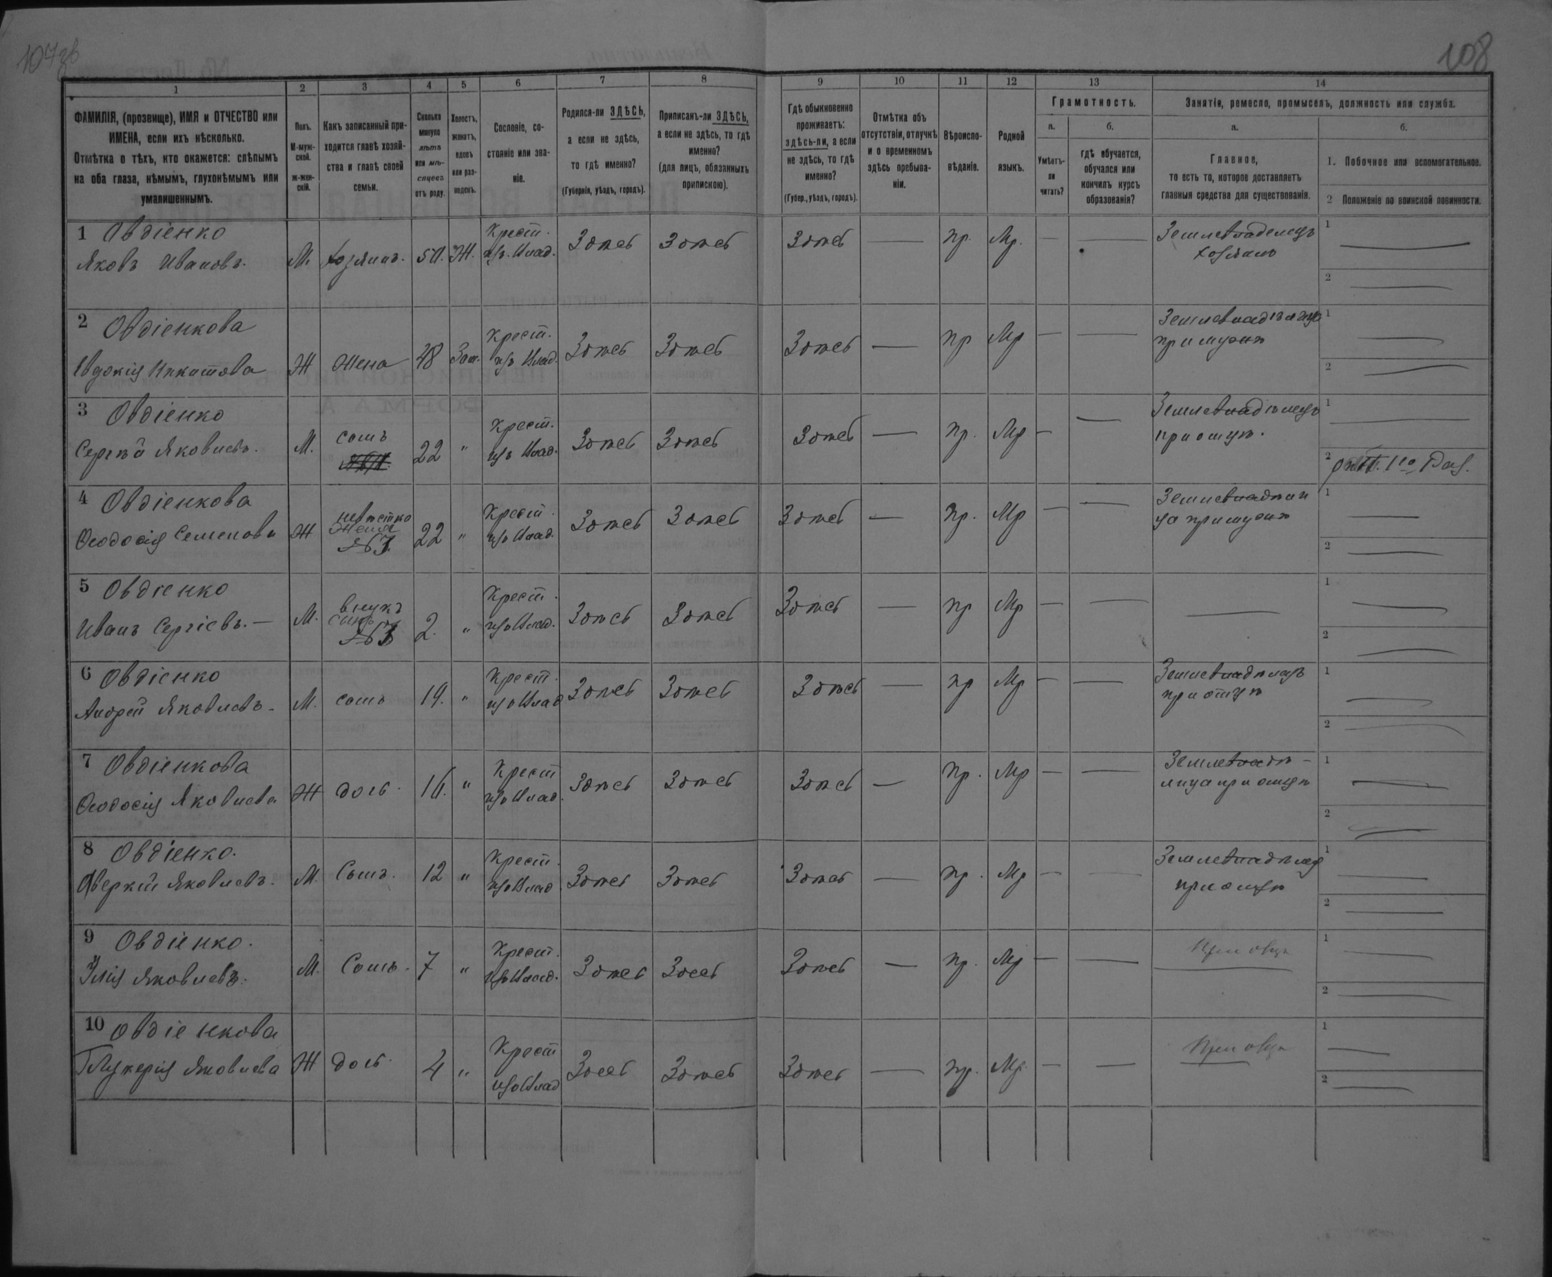 107об
108
1
ФАМИЛІЯ, (прозвище), ИМЯ и ОТЧЕСТВО или
ИМЕНА, если ихъ нѣсколько.
Отмѣтка о тѣхъ, кто окажется: слѣпымъ
на оба глаза, нѣмымъ, глухонѣмымъ или
умалишеннымъ.
2
Полъ.
М-муж-
ской.
ж-жен-
скій.
3
Какъ записанный при-
ходится главѣ хозяй-
ства и главѣ своей
семьи.
4
Сколько
минуло
лѣтъ
или мѣ-
сяцевъ
отъ роду.
5
Холостъ,
женатъ,
вдовъ
или раз-
веденъ.
6
Сословіе, со-
стояніе или зва-
ніе.
7
Родился-ли ЗДѢСЬ,
а если не здѣсь,
то гдѣ именно?
(Губернія, уѣздъ, городъ).
8
Приписанъ-ли ЗДѢСЬ,
а если не здѣсь, то гдѣ
именно?
(для лицъ, обязанныхъ
припискою).
9
Гдѣ обыкновенно
проживаетъ:
здѣсь-ли, а если
не здѣсь, то гдѣ
именно?
(Губер., уѣздъ, городъ).
10
Отмѣтка объ
отсутствіи, отлучкѣ
и о временномъ
здѣсь пребыва-
ніи.
11
Вѣроиспо-
вѣданіе.
12
Родной
языкъ.
13
Грамотность.
а.
Умѣетъ-
ли
читать?
б.
гдѣ обучается,
обучался или
кончилъ курсъ
образованія?
14
Занятіе, ремесло, промыселъ, должность или служба.
а.
Главное,
то есть то, которое доставляетъ
главныя средства для существованія.
б.
1. Побочное или вспомогательное.
2 Положеніе по воинской повинности.
1 Овдіенко
Яковъ Ивановъ. М. хозяинъ. 50. Ж. Крест. изъ Влад. Здесь Здесь Здесь — Пр. Мр. — — Землевладелецъ
хозяинъ
1 —
2 —
2 Овдіенкова
Евдокія Никитова Ж Жена 48 Зам. Крест. изъ Влад. Здесь Здесь Здесь — Пр Мр — —
1 —
2 —
3 Овдіенко
Сергѣй Яковлевъ. М. сынъ 22 " Крест. изъ Влад. Здесь Здесь Здесь — Пр. Мр — — Землевладѣлецъ
при отцѣ.
1 —
2
4 Овдіенкова
Ѳеодосія Семенова Ж невѣстка
Жена
№3 22 " Крест. изъ Влад. Здесь Здесь Здесь — Пр. Мр — —
1 —
2 —
5 Овдіенко
Иванъ Сергіевъ. — М. внукъ
сынъ
№3 2. " Крест. изъ Влад. Здесь Здесь Здесь — Пр Мр — — —
1 —
2 —
6 Овдіенко
Андрей Яковлевъ. М. сынъ 19. " Крест. изъ Влад Здесь Здесь Здесь — Пр Мр — — Землевладѣлецъ
при отцѣ
1 —
2 —
7 Овдіенкова
Ѳеодосія Яковлева Ж дочь. 16. " Крест изъ Влад. Здесь Здесь Здесь — Пр. Мр — — Землевладѣ-
лица при отцѣ
1 —
2 —
8 Овдіенко.
Аверкій Яковлевъ. М. Сынъ. 12 " Крест. изъ Влад Здесь Здесь Здесь — Пр. Мр — — Землевладѣлецъ
при отцѣ
1 —
2 —
9 Овдіенко.
Илія Яковлевъ. М. Сынъ. 7 " Крест. изъ Влад. Здесь Здесь Здесь — Пр. Мр — — При отцѣ
1 —
2 —
10 Овдіенкова
Глукерія Яковлева Ж дочь. 4 " Крест изъ Влад Здесь Здесь Здесь — Пр. Мр. — — При отцѣ
1 —
2 —